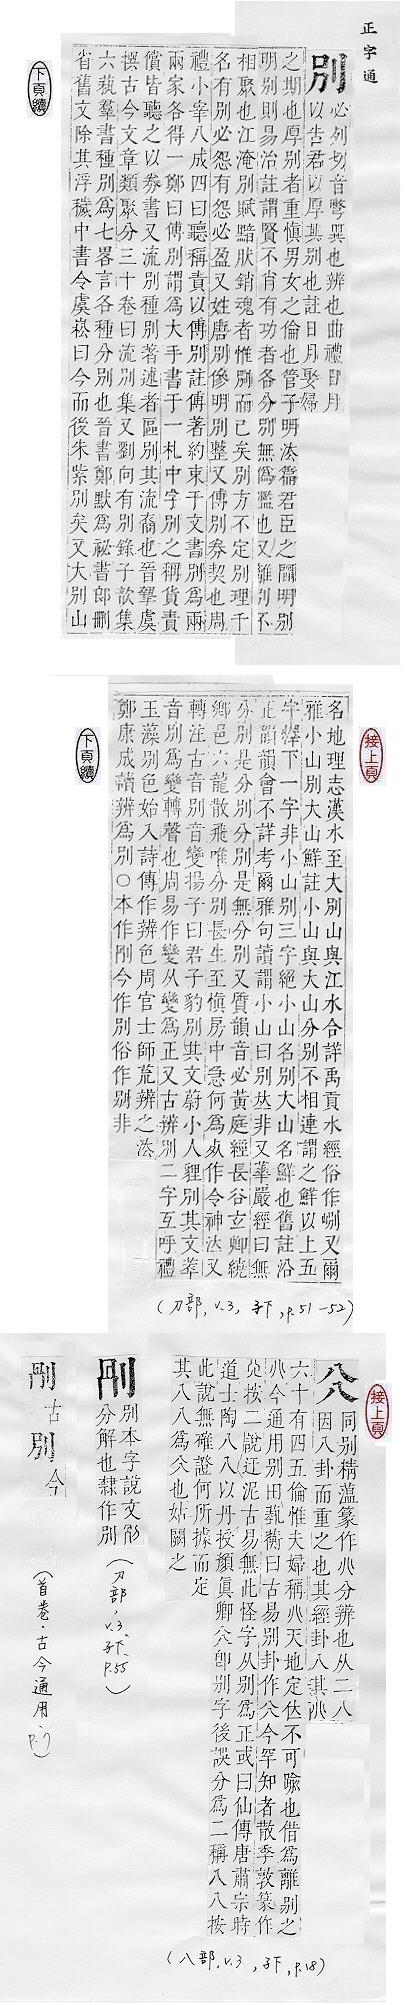 正字通
別
必列切音彆異也辨也曲禮日月
以告君以厚其別也註日月娶婦
之期也厚別者重慎男女之倫也管子明法篇君臣之間明別
明別則易治註謂賢不肖有功者各分別無為濫也又離別不
相聚也江淹別賦黯肰銷魂者惟別而已矣別方不定別理千
名有別必怨有怨必盈又姓唐別傪明別整又傅別券契也周
禮小宰八成四曰聽稱責以傅別註傅著約束于文書別為兩
兩家各得一鄭曰傅別謂為大手書于一札中字別之稱貨責
償皆聽之以券書又流別種別著述者區別其流裔也晉摯虞
撰古今文章類聚分三十卷曰流別集又劉向有別錄子歆集
六蓺羣書種別為七畧言各種分別也晉書鄭默為祕書郎刪
省舊文除其浮穢中書令虞崧曰今而後朱紫別矣又大別山
下頁續
接上頁
名地理志漢水至大別山與江水合詳禹貢水經俗作峢又爾
雅小山別大山鮮註小山與大山分別不相連謂之鮮以上五
字釋下一字非小山別三字絕小山名別大山名鮮也舊註沿
正韻韻會不詳考爾雅句讀謂小山曰別𠀤非又華嚴經曰無
分別是分別分別是無分別又質韻音必黃庭經長谷玄鄉繞
鄉邑六龍散飛唯分別長生至慎房中急何為死作令神泣又
轉注古音別音變揚子曰君子豹別其文蔚小人貍別其文萃
音別為變轉聲也周易作變从變為正又古辨別二字互呼禮
玉藻別色始入詩傳作辨色周官士師荒辨之法
鄭康成讀辨為別○本作𠛰今作別俗作别非
下頁續
(刀部,v.3,子下,p.51-52)
接上頁
𠔁
同別精蘊篆作𠔁分辨也从二八
因八卦而重之也其經卦八其𠔁
六十有四五倫惟夫婦稱𠔁天地定位不可踰也借為離別之
𠔁今通用別田藝蘅曰古易別卦作㕣今罕知者散季敦篆作
㕣按二說迂泥古易無此怪字从別為正或曰仙傳唐肅宗時
道士陶八八以丹授顏真卿㕣卽別字後誤分為二稱八八按
此說無確證何所據而定
其八八為㕣也姑闕之
(八部,v.3,子下,p.18)
𠛰
別本字說文𠛰
分解也隸作別
(刀部,v.3,子下,p.55)
𠛰古別今
(首卷·古今通用,p.7)